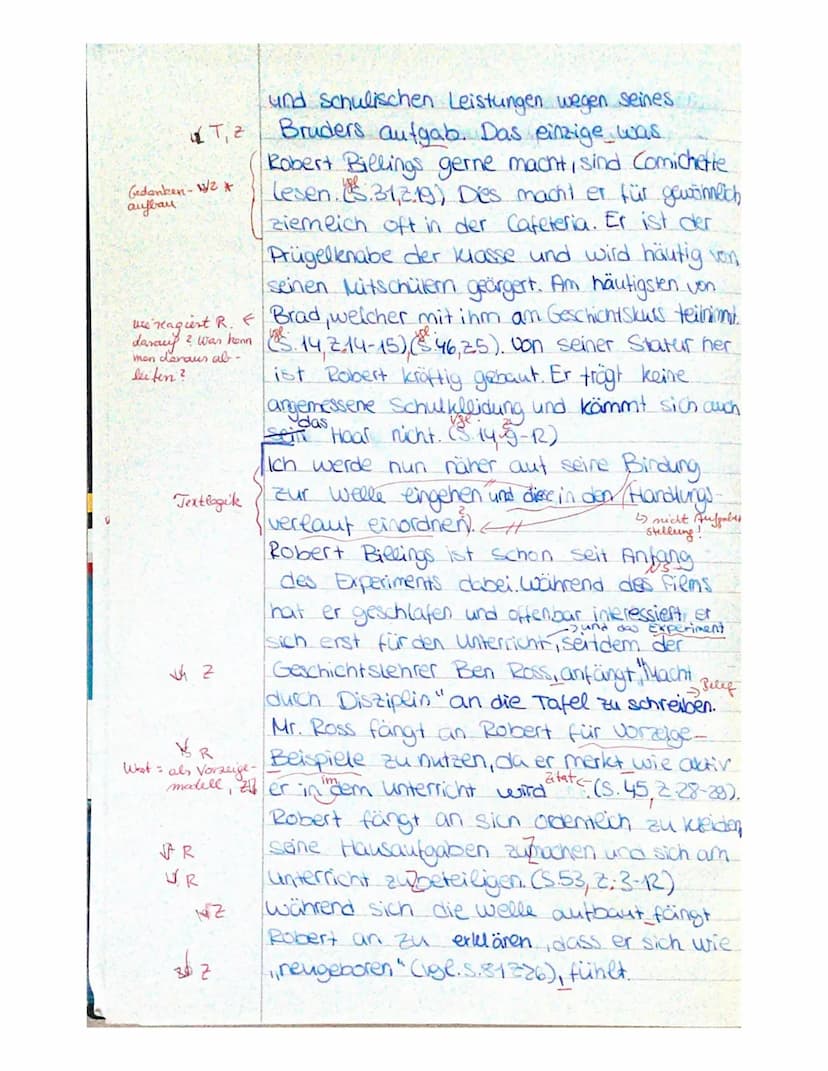 und schulischen Leistungen wegen seines
T, Z Bruders aufgab. Das einzige was
Robert Billings gerne macht, sind Comichefte
Gedanken-
aufbau
vgl.
lesen. (S.31, Z.19) Dies macht er für gewöhnlich
ziemlich oft in der Cafeteria. Er ist der
Prügelknabe der Klasse und wird häufig von
seinen Mitschülern geärgert. Am häufigsten von
Brad, welcher mit ihm am Geschichtskurs teilnimmt.
wie reagiert R.
darauf? Was kann
man daraus ab-
leiten?
vgl. vgl.
(S.14, Z.14-15), (S.46, Z.5). Von seiner Statur her
ist Robert kräftig gebaut. Er trägt keine
angemessene Schulkleidung und kämmt sich auch
das vgl. Z
sein Haar nicht. (S.14, 9-12)
Ich werde nun näher auf seine Bindung
Textlogik zur Welle eingehen und diese in den Handlungs-
verlauf einordnen.
nicht Aufgaben
stellung!
Robert Billings ist schon seit Anfang
NS
des Experiments dabei. Während des Films
hat er geschlafen und offenbar interessiert er
und das Experiment
sich erst für den Unterricht, seitdem der
Z Geschichtslehrer Ben Ross, anfängt, "Macht
Beleg
durch Disziplin" an die Tafel zu schreiben.
Mr. Ross fängt an Robert für Vorzeige-
R Beispiele zu nutzen, da er merkt wie aktiv
Wort = als Vorzeige-
modell, Z
im Zitat
er in dem Unterricht wird (S.45, Z.28-29).
Robert fängt an sich ordentlich zu kleiden
R seine Hausaufgaben zumachen und sich am
R Unterricht zubeteiligen. (S.53, Z.3-12)
Z Während sich die Welle aufbaut fängt
Robert an zu erklären, dass er sich wie
Z „neugeboren" (vgl. S.81 Z26), fühlt.